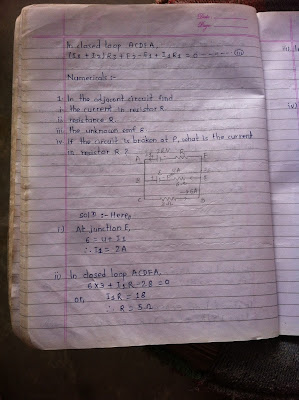 In closed loop ACDFA,
(I2 + I3) R3 + E2 - E1 + I1R1 = 0 (ii)
Numericals :-
1. In the adjacent circuit find
i. the current in resistor R.
ii. resistance R.
iii. the unknown emf E
iv. If the circuit is broken at P, what is the current
in resistor R ?
A
F
B
E
4A
C
D
solⁿ :- Here,
i) At junction E,
6 = 4 + I1
∴ I1 = 2A
ii) In closed loop ACDFA,
6×3 + I1R - 28 = 0
or,
∴ R = 5Ω